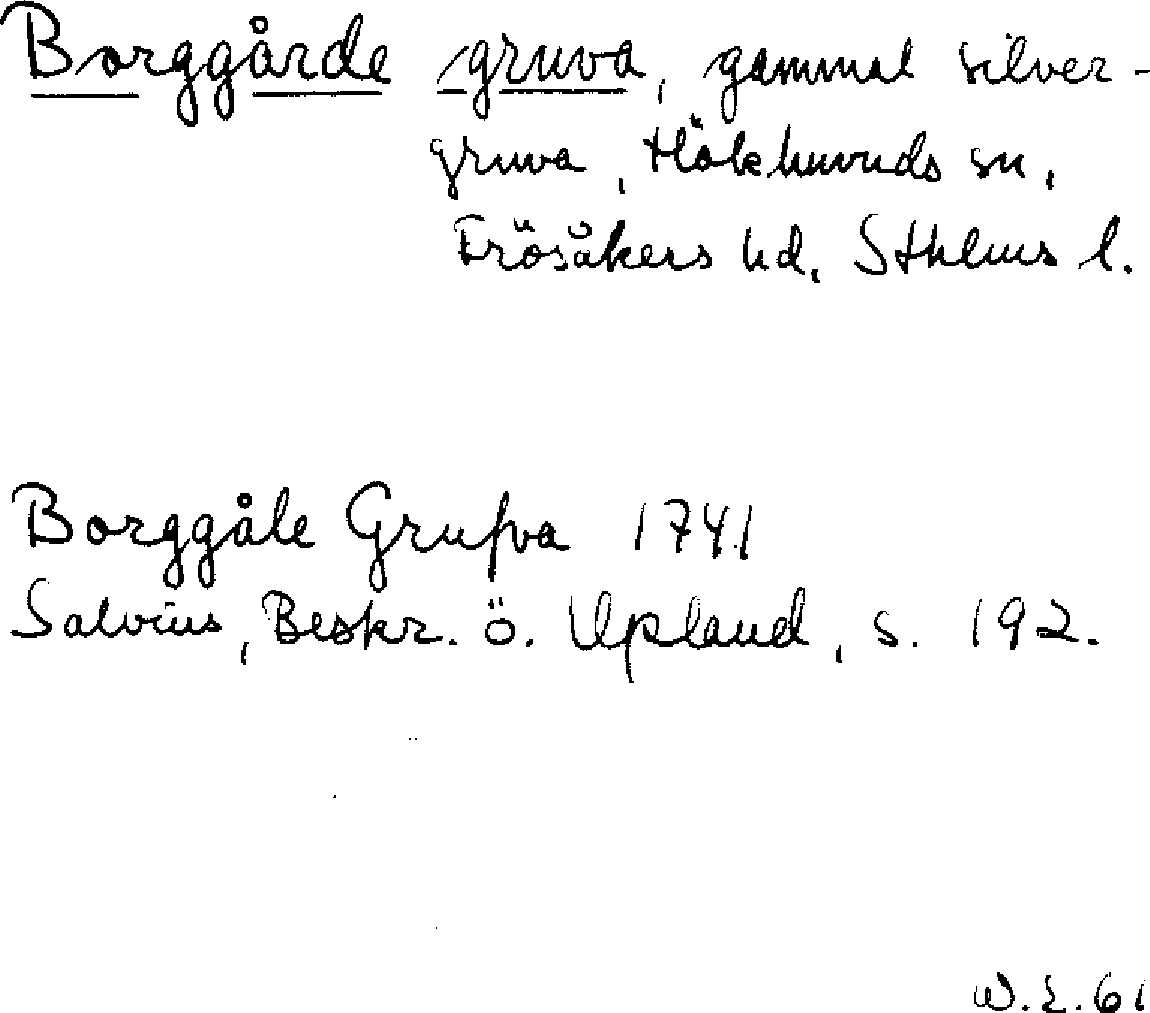 Borggårde gruva, gammal silver-
gruva, Hökhuvuds sn,
Frösåkers hd, Sthlms l.
Borggåle Grufva 1741
Salvius, Beskr. ö. Upland, s. 192.
W.E.61